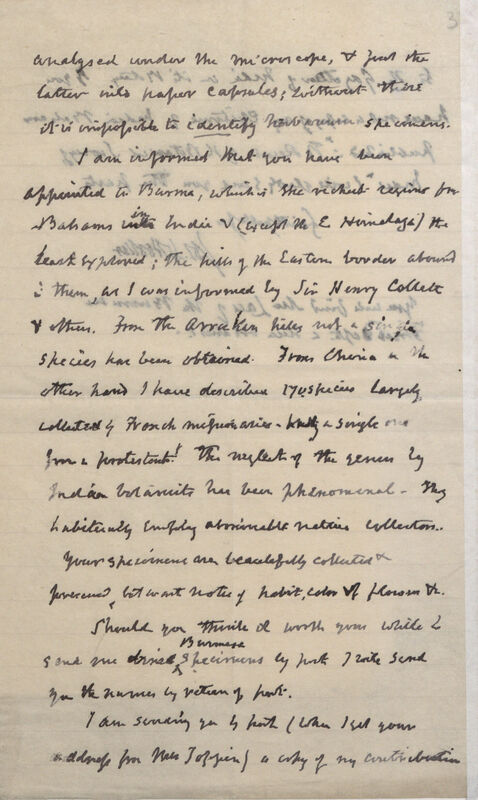 3
analysed under the microscope, & put the
latter into paper capsules; without these
it is impossible to identify herbarium specimens.
I am informed that you have been
appointed to Burma, which is the richest region for
Balsams in India & (except the E Himalaya) the
least explored; the hills of the Eastern border abound
in them, as I was informed by Sir Henry Collett
& others. From the Arrakan hills not a single
species has been obtained. From China on the
other hand I have described 170 species largely
collected by French missionaries - hardly a single one
from a protestant! The neglect of the genus by
Indian botanists has been phænomenal - They
habitually employ abominable native collectors.
Your specimens are beautifully collected &
preserved, but want notes of habit, color of flowers &c.
Should you think it worth your while to
send me dried Burmese specimens by post I will send
you the names by return of post.
I am sending you by post (when I get your
address from Miss ) a copy of my contribution